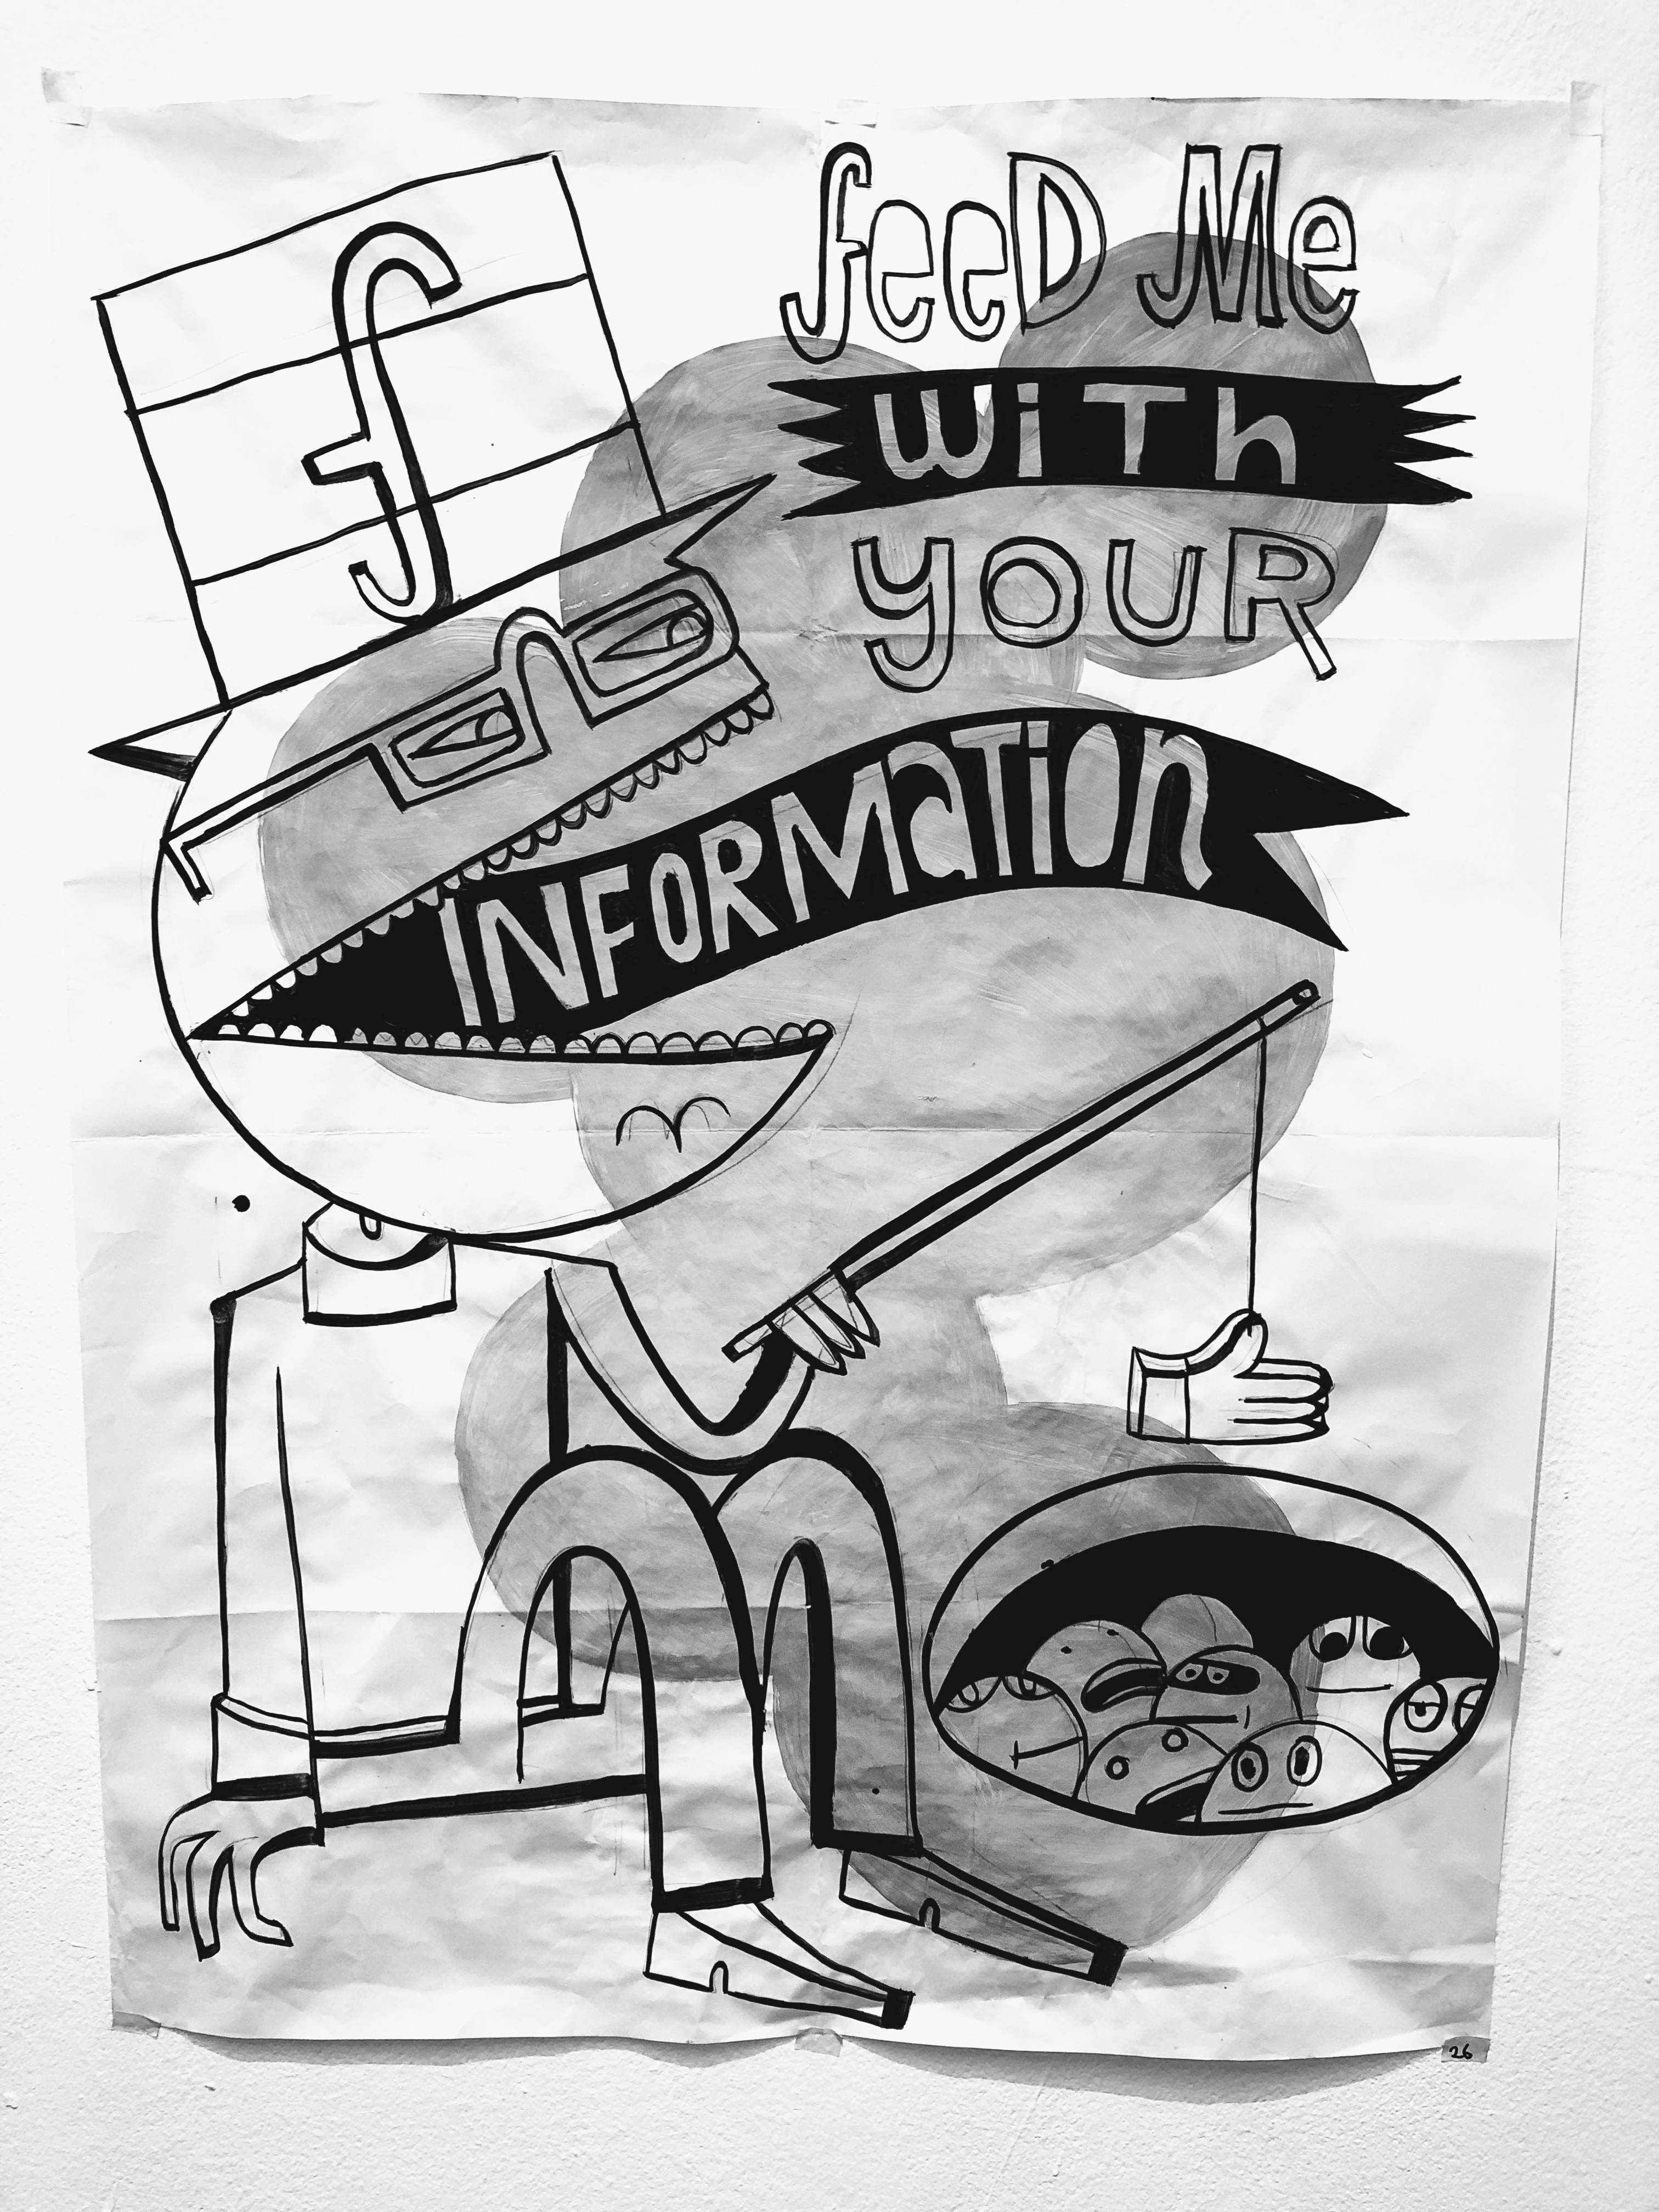 f
feeD Me
WiTh
youR
INFORMaTiOn
26